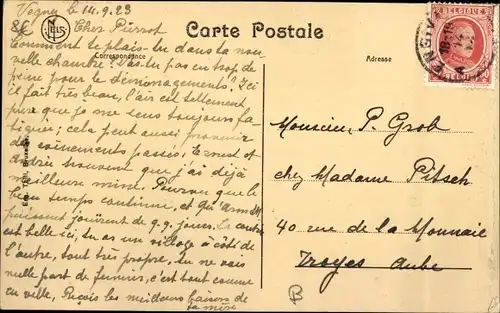 Vezon le 14.9.23
Carte Postale
Cher Pierrot
Correspondance
Adresse
Comment te plais-tu dans ta nou-
velle chambre? Pas trop de
peine pour le déménagement? Ici
il fait très beau, l'air est tellement
pure que je me sens toujours fa-
tiguée; cela peut aussi provenir
des évènements passés. Ernest et
André trouvent que j'ai déjà
meilleure mine. Pourvu que le
beau temps continue, et qu'
puissent jouïrent de q.q. jours. La contrée
est belle ici, tu as un village à côté de
l'autre, tout très propre, tu ne vois
nulle part de fumier, c'est tout comme
en ville, Reçois les meilleurs baisers de
ta mère
Monsieur P. Grob
chez Madame Pitsch
40 rue de la Monnaie
Troyes Aube
BELGIQUE
BELGIË
NELS